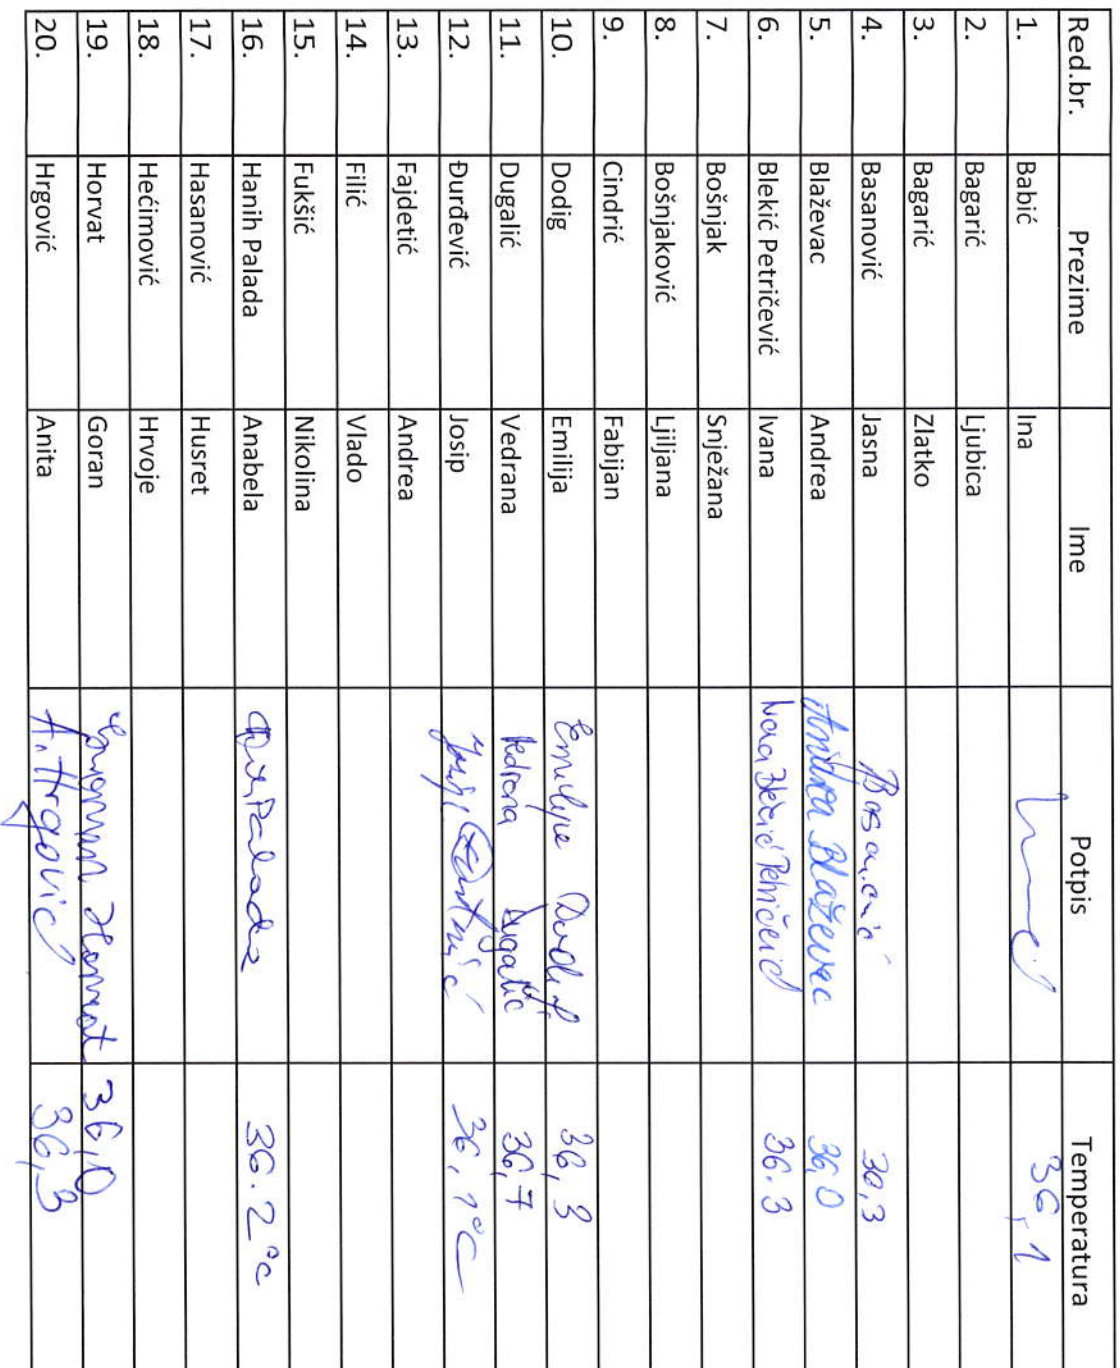 Red.br. Prezime Ime Potpis Temperatura
1. Babić Ina 36,1
2. Bagarić Ljubica
3. Bagarić Zlatko
4. Basanović Jasna Basanović 36,3
5. Blaževac Andrea Andrea Blaževac 36,0
6. Blekić Petričević Ivana Ivana Blekić Petričević 36.3
7. Bošnjak Snježana
8. Bošnjaković Ljiljana
9. Cindrić Fabijan
10. Dodig Emilija Emilija Dodig 36,3
11. Dugalić Vedrana Vedrana Dugalić 36,7
12. Đurđević Josip Josip Đurđević 36,1°C
13. Fajdetić Andrea
14. Filić Vlado
15. Fukšić Nikolina
16. Hanih Palada Anabela Palada 36.2°C
17. Hasanović Husret
18. Hećimović Hrvoje
19. Horvat Goran Horvat 36,0
20. Hrgović Anita A. Hrgović 36,3